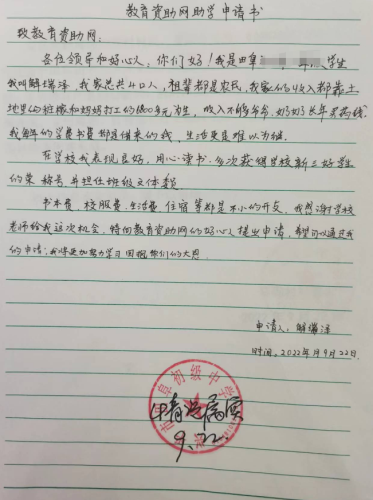 教育资助网助学申请书
致教育资助网:
各位领导和好心人,你们好!我是田阜 学生
我叫解瑞泽,我家总共4口人,祖辈都是农民,我家的收入都靠土
地里的庄稼和妈妈打工的1800多元为生,收入不够爷爷、奶奶长年买药钱,
我解的学费书费都是借来的钱,生活更是难以为继。
在学校我表现良好,用心读书,多次获得学校新三好学生
的荣 称号,并担任班级文体委员。
书本费、校服费、生活费、住宿等都是不小的开支,我感谢学校
老师给我这次机会,特向教育资助网的好心人提出申请,希望可以通过我
的申请;我将更加努力学习回报你们的大恩。
申请人:解瑞泽
时间:2022年9月22日.
初级中学
申请属实
9.22.